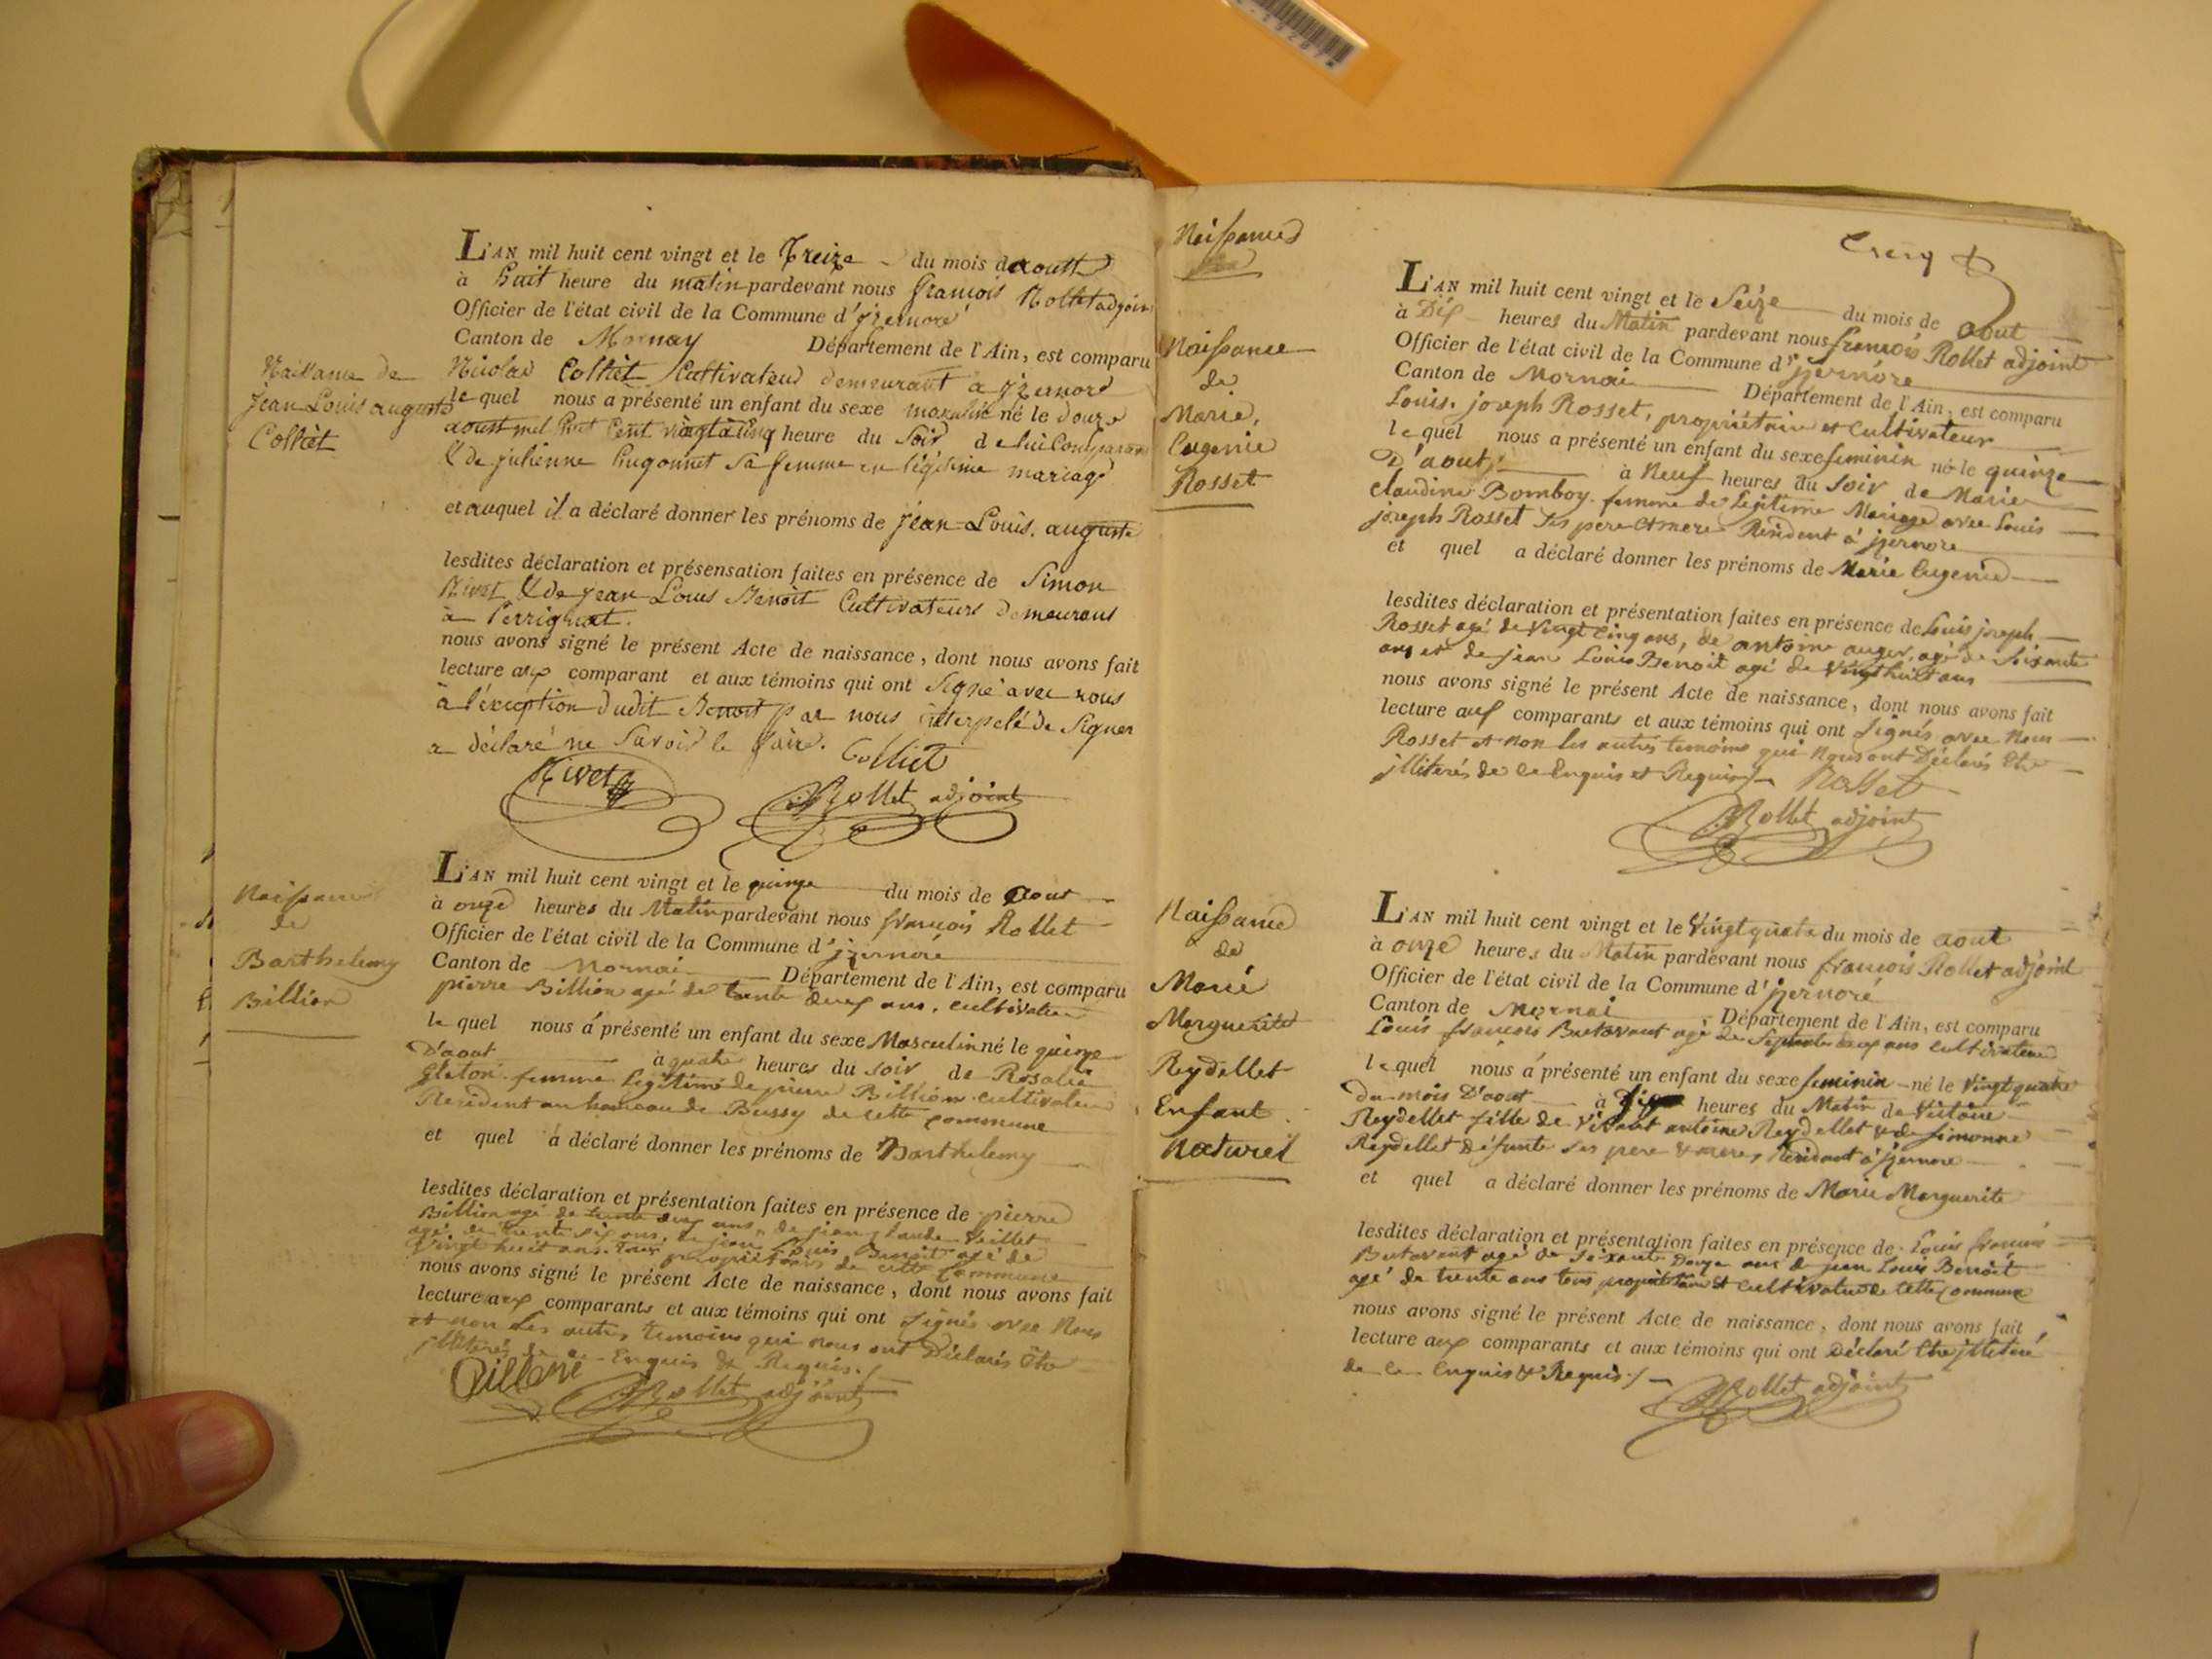 Naissance de
Jean Louis auguste
Colliet
L'AN mil huit cent vingt et le Treize du mois d'aoust
à huit heure du matin pardevant nous françois Rollet adjoint
Officier de l'état civil de la Commune d'izernore
Canton de Mornay Département de l'Ain, est comparu
Nicolas Colliet Cultivateur demeurant a izernore
lequel nous a présenté un enfant du sexe masculin né le douze
aoust mil huit Cent vingt à cinq heure du soir de lui Comparant
& de julienne hugonnet sa femme en légitime mariage
et auquel il a déclaré donner les prénoms de jean-Louis. auguste
lesdites déclaration et présensation faites en présence de Simon
Rivet & de jean-Louis Benoit Cultivateurs demeurans
à Perrignat.
nous avons signé le présent Acte de naissance, dont nous avons fait
lecture aux comparant et aux témoins qui ont signé avec nous
à l'éxception dudit Benoit par nous interpelé de signer
a déclaré ne savoir le faire. Colliet
Rivet Rollet adjoint
Naissance
de
Barthelemy
Billion
L'AN mil huit cent vingt et le quinze du mois de aout
à onze heures du Matin pardevant nous françois Rollet
Officier de l'état civil de la Commune d'izernore
Canton de Mornai Département de l'Ain, est comparu
pierre Billion agé de trente deux ans, cultivateur
le quel nous á présenté un enfant du sexe Masculin né le quinze
D'aout à quatre heures du soir de Rosalie
femme Legitime de pierre Billion cultivateur
Resident au hameau de Bussy de cette commune
et quel à déclaré donner les prénoms de Barthelemy
lesdites déclaration et présentation faites en présence de pierre
Billion agé de trente deux ans, de jean Claude Veillet
agé de trente six ans, de jean Louis Benoit agé de
Vingt huit ans. Tous propriétaires de cette Commune
nous avons signé le présent Acte de naissance, dont nous avons fait
lecture aux comparants et aux témoins qui ont signés avec Nous
et non Les autres temoins qui nous ont Déclarés être
jllitérés de ce Enquis & Requis./
Rollet adjoint
Naissance
Naissance
de
Marie,
Eugenie
Rosset
L'AN mil huit cent vingt et le Seize du mois de aout
à Dix heures du Matin pardevant nous françois Rollet adjoint
Officier de l'état civil de la Commune d'izernore
Canton de Mornai Département de l'Ain, est comparu
Louis. joseph Rosset, propriétaire et Cultivateur
lequel nous a présenté un enfant du sexe feminin né le quinze
D'aout, à Neuf heures du soir de Marie
Claudine Bomboy femme de Legitime Mariage avec Louis
joseph Rosset ses pere et mere Resident à izernore
et quel a déclaré donner les prénoms de Marie Eugenie
lesdites déclaration et présentation faites en présence de Louis joseph
Rosset agé de vingt cinq ans, de antoine auger, agé de soixante
ans et de jean Louis Benoit agé de vingt huit ans
nous avons signé le présent Acte de naissance, dont nous avons fait
lecture aux comparants et aux témoins qui ont signés avec Nous
Rosset et non les autres temoins qui Nous ont Déclarés Etre
jlliterés de ce Enquis et Requis/ Rosset
Rollet adjoint
Naissance
de
Marie
Marguerite
Reydellet
Enfant
Naturel
L'AN mil huit cent vingt et le Vingt quatre du mois de aout
à onze heures du Matin pardevant nous françois Rollet adjoint
Officier de l'état civil de la Commune d'izernore
Canton de Mornai Département de l'Ain, est comparu
Louis françois Butavant agé de Septante deux ans cultivateur
lequel nous á présenté un enfant du sexe feminin né le Vingt quatre
du mois D'aout à Dix heures du Matin de Victoire
Reydellet fille de antoine Reydellet & de simonne
Reydellet défunte ses pere & mere, Residant à izernore
et quel a déclaré donner les prénoms de Marie Marguerite
lesdites déclaration et présentation faites en présence de Louis françois
Butavant agé de soixante Douze ans de jean Louis Benoit
agé de trente ans tous propriétaire & cultivateur de cette Commune
nous avons signé le présent Acte de naissance, dont nous avons fait
lecture aux comparants et aux témoins qui ont Déclaré Etre jlliteré
de ce Enquis & Requis./
Rollet adjoint